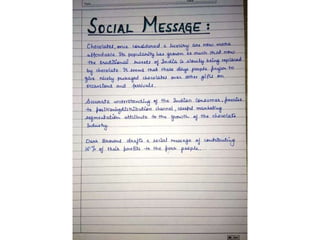 SOCIAL MESSAGE:
Chocolates, once considered a luxury are now more
affordable. Its popularity has grown so much that now
the traditional sweets of India is slowly being replaced
by chocolate. It seems that these days people prefer to
give nicely packaged chocolates over other gifts on
occasions and festivals.
Accurate understanding of the Indian consumer,
to positioning distribution channel, careful marketing
segmentation attribute to the growth of the chocolate
industry.
Dear Brownie drafts a social message of contributing
10% of their profits to the poor people.